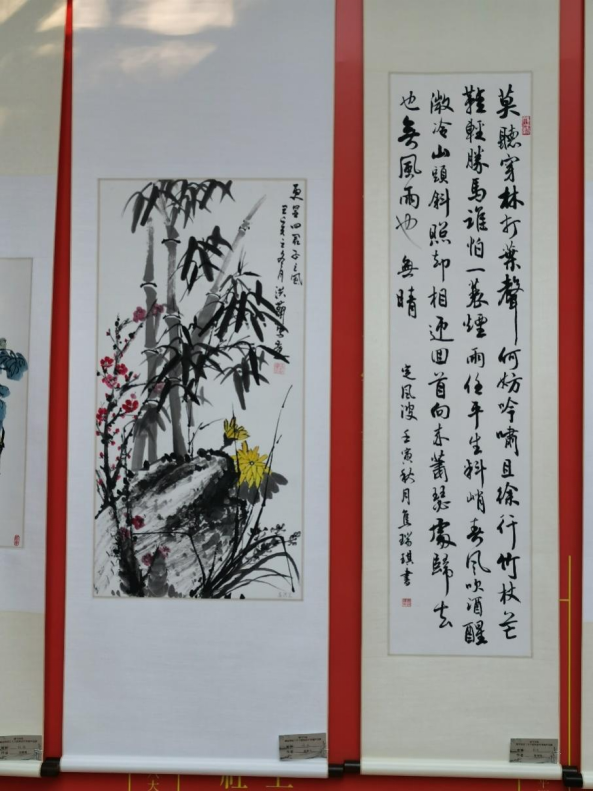 莫聽穿林打葉聲何妨吟嘯且徐行竹杖芒
鞋輕勝馬誰怕一蓑煙雨任平生料峭春風吹酒醒
微冷山頭斜照却相迎回首向來蕭瑟處歸去
也無風雨也無晴 定風波 壬寅秋月焦瑞琪書
四君子之風